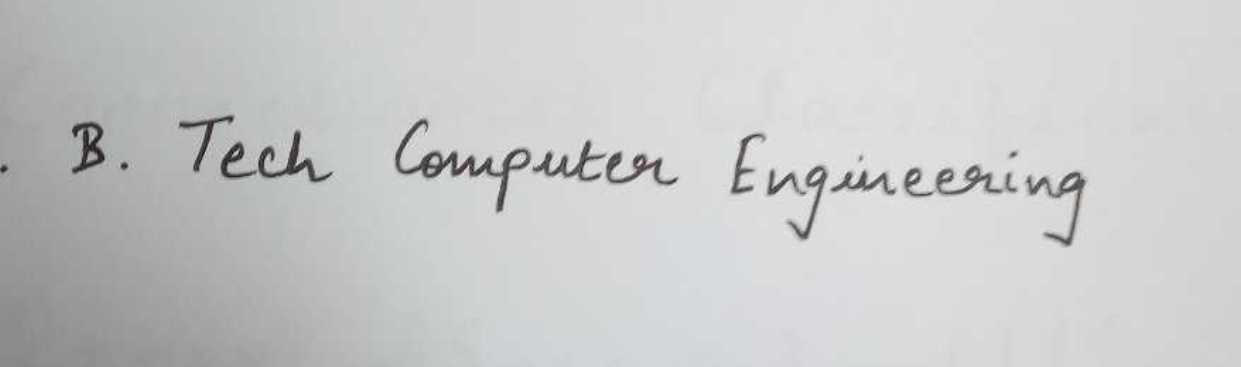 . B. Tech Computer Engineering